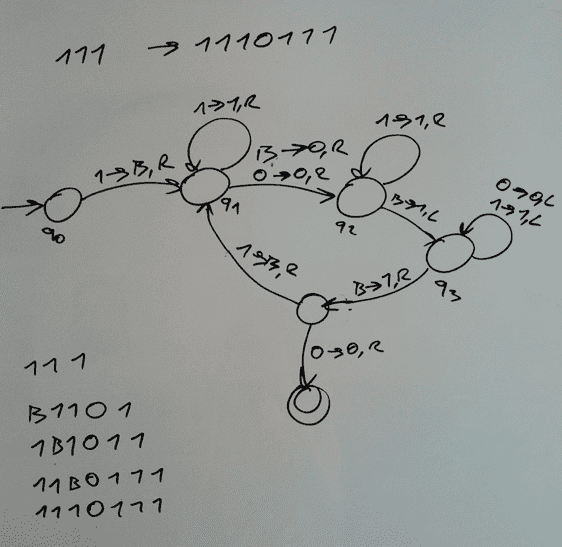 111 → 1110111
1→1,R
1→1,R
B→0,R
0→0,R
1→B,R
q0
q1
q2
B→1,L
0→0,L
1→1,L
q3
1→B,R
B→1,R
0→0,R
111
B1101
1B1011
11B0111
1110111